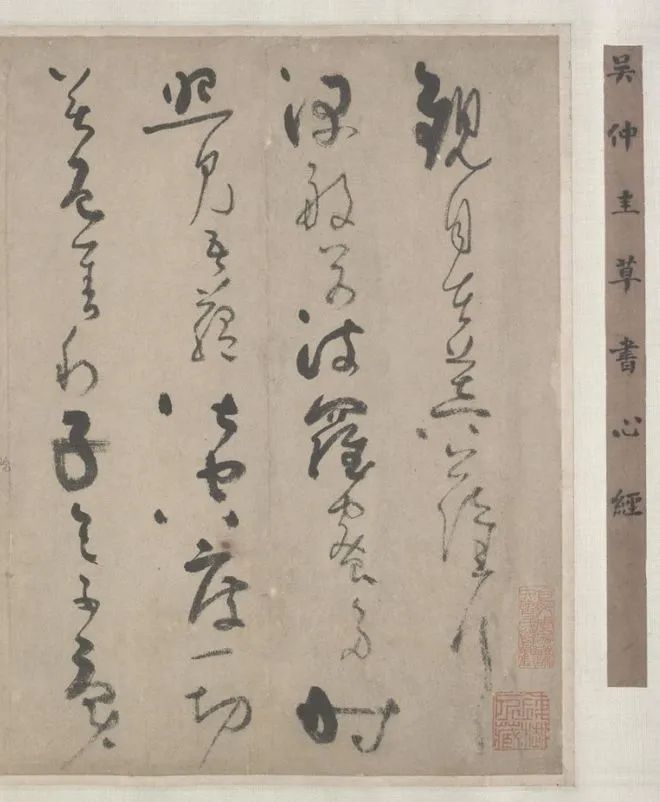 吳仲圭草書心經
觀自在菩薩行
深般若波羅蜜多時
照見五蘊皆空度一切
苦厄舍利子色不異